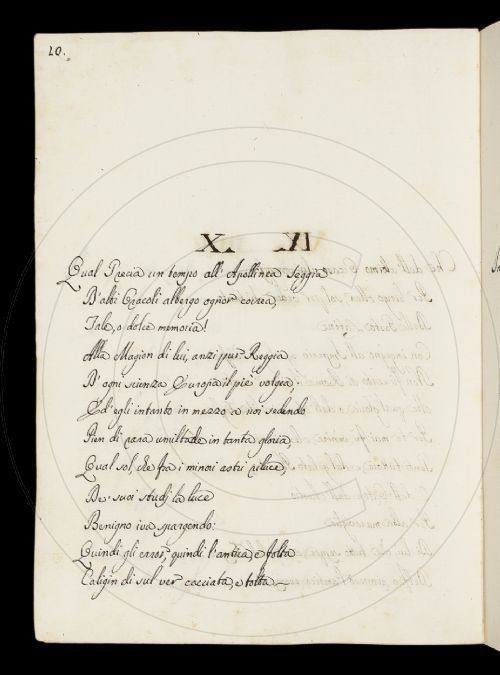 20.
X.
Qual Grecia un tempo all' Apollinea Seggia
D'alti Oracoli albergo ognor correa,
Tale, o dolce memoria!
Alla Magion di lui, anzi pur Reggia
D' ogni scienza Europa il piè volgea,
Ed' egli intanto in mezzo a noi sedendo
Pien di rara umiltade in tanta gloria,
Qual sol, che fra i minori astri riluce,
De' suoi studj la luce
Benigno iva spargendo:
Quindi gli error, quindi l'antica, e folta
Caligin di sul ver cacciata, e tolta